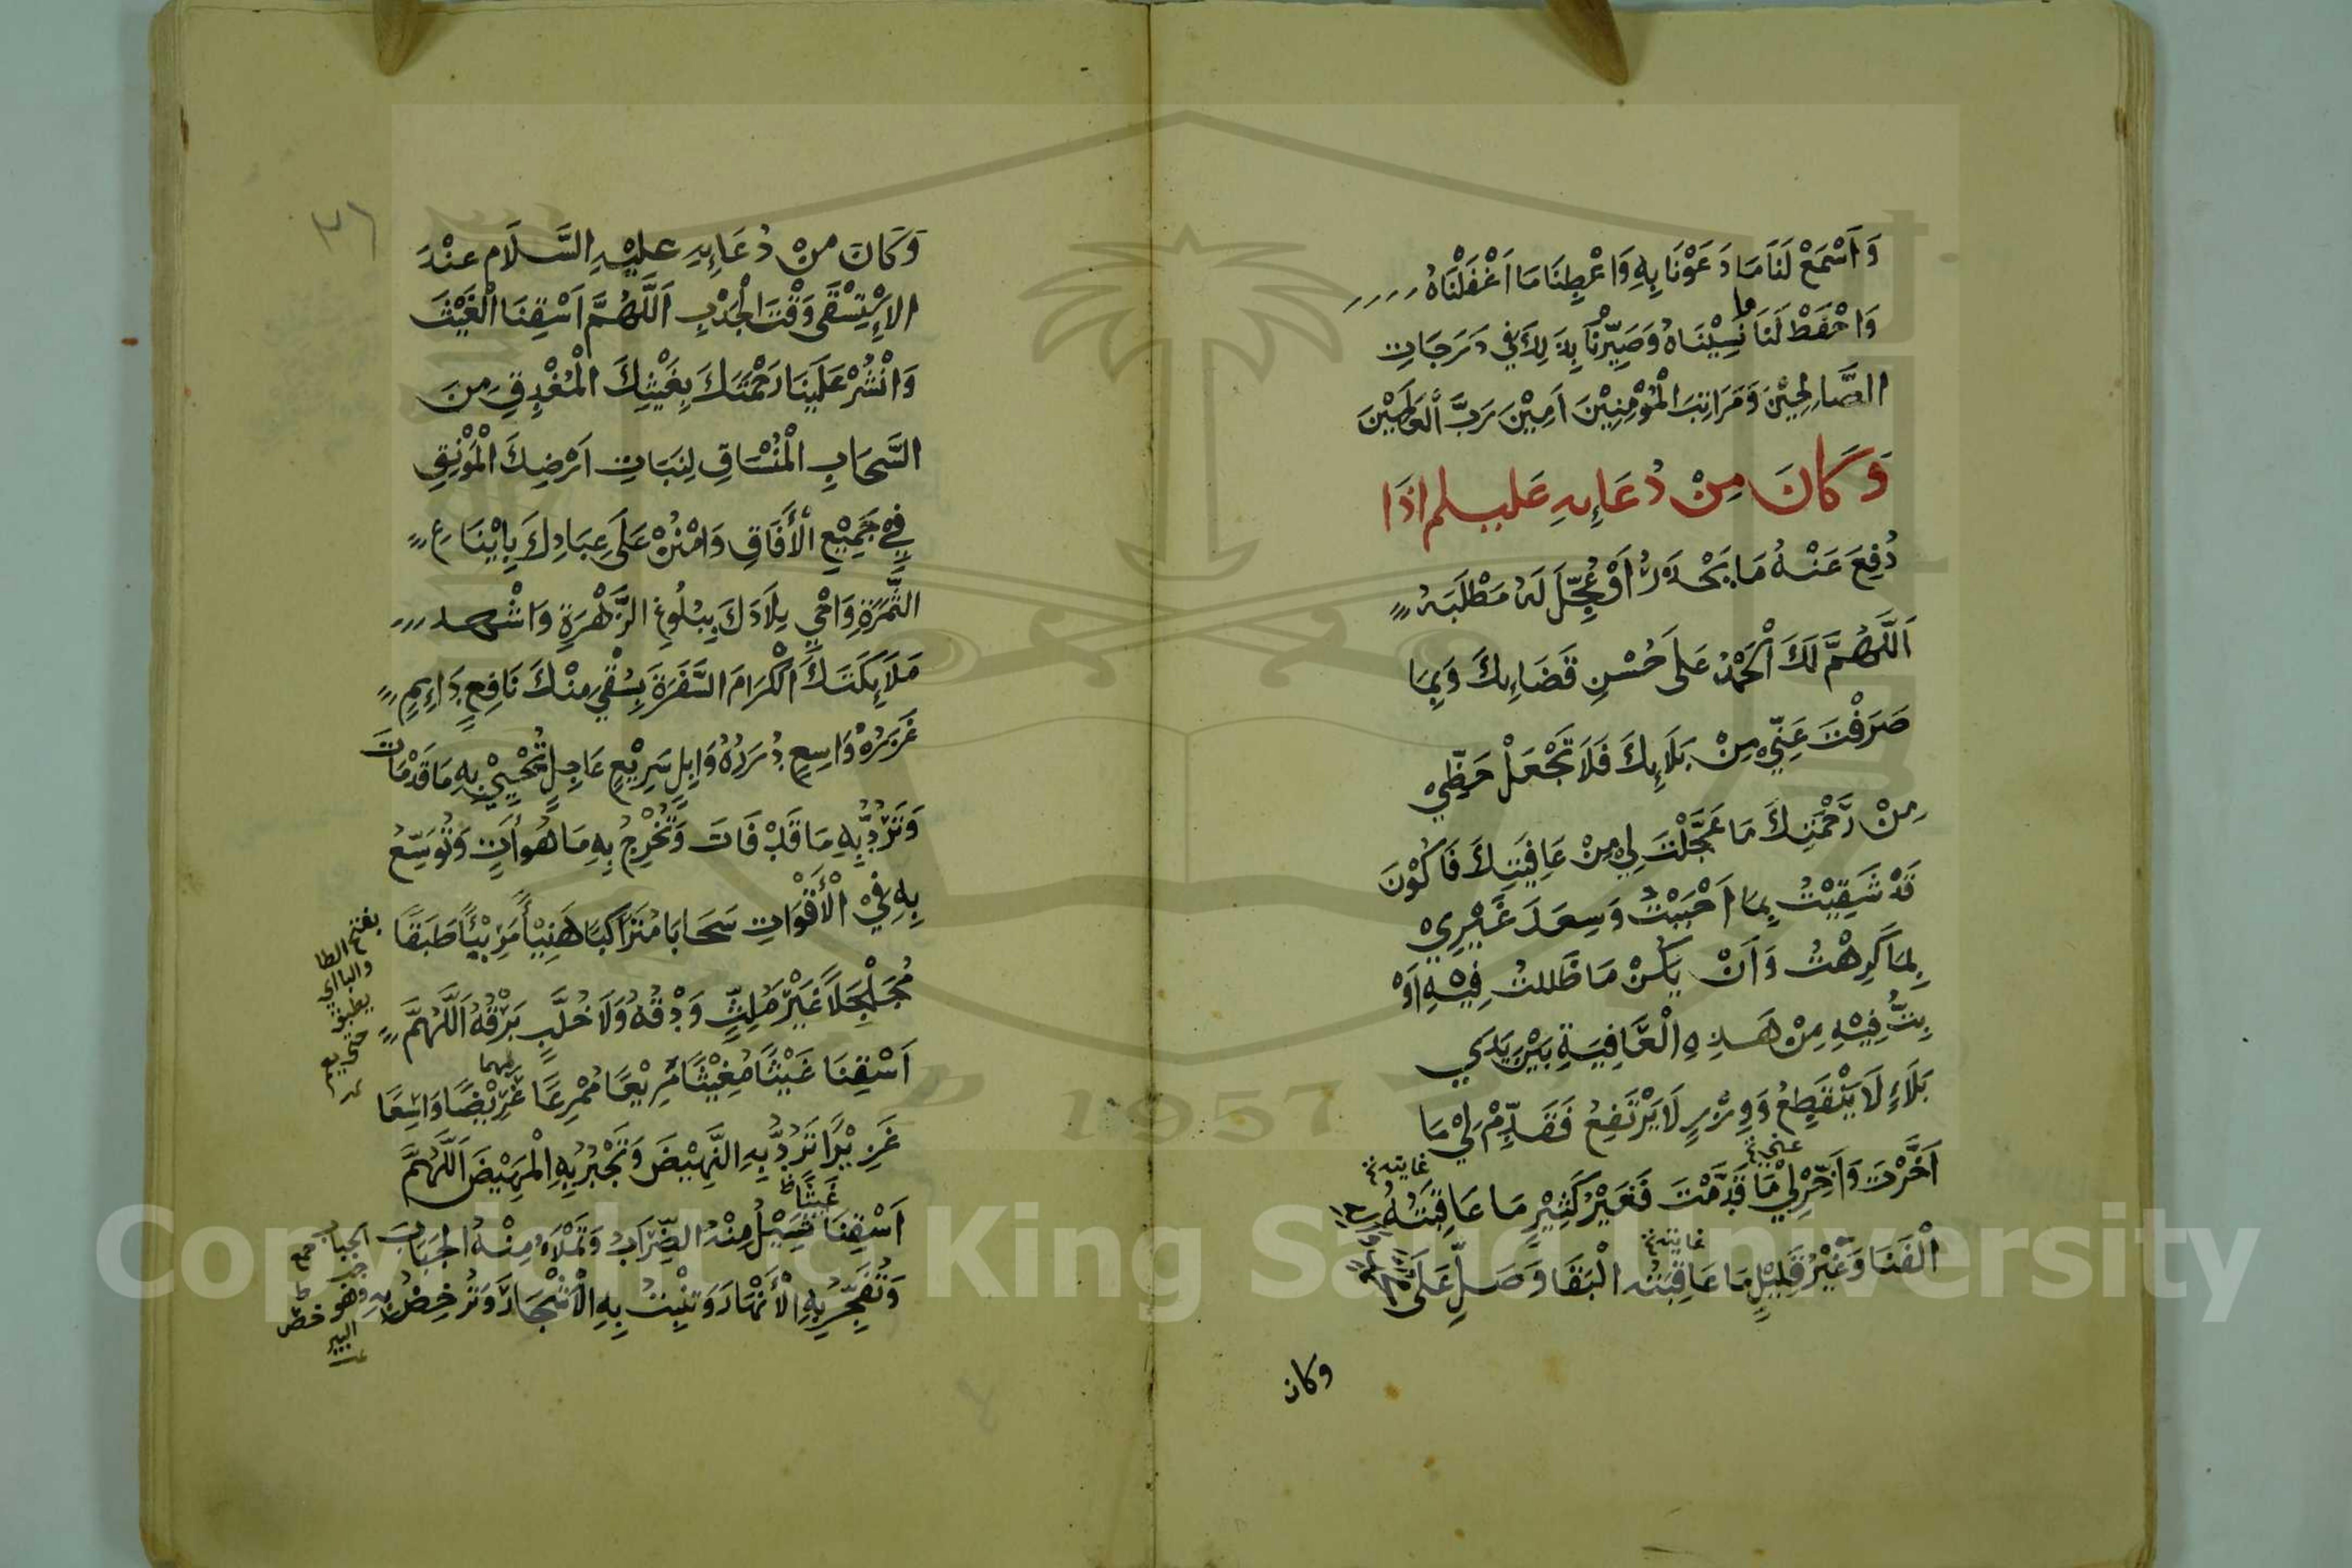 وَاَسْمِعْ لَنَا مَا دَعَوْنَا بِهِ وَاَعْطِنَا مَا اَغْفَلْنَاهُ
وَاحْفَظْ لَنَا مَا نَسِيْنَاهُ وَصَيِّرْنَا بِذَلِكَ فِي دَرَجَاتِ
الصَّالِحِيْنَ وَمَرَاتِبَ الْمُؤْمِنِيْنَ اَمِيْنَ رَبَّ الْعَالَمِيْنَ
وَكَانَ مِنْ دُعَائِهِ عَليهلسلم اذَا
دُفِعَ عَنْهُ مَا يَحْذَرُ اَوْ عُجِّلَ لَهُ مَطْلَبَهُ
اَللَّهُمَّ لَكَ الْحَمْدُ عَلَى حُسْنِ قَضَائِكَ وَبِمَا
صَرَفْتَ عَنِّيْ مِنْ بَلَائِكَ فَلَا تَجْعَلْ حَظِّيْ
مِنْ رَحْمَتِكَ مَا عَجَّلْتَ لِيْ مِنْ عَافِيَتِكَ فَاَكُوْنَ
قَدْ شَقِيْتُ بِمَا اَحْبَبْتُ وَسِعَدَ غَيْرِيْ
بِمَا كَرِهْتُ وَاَنْ يَكُنْ مَا ظَللتُ فِيْهِ اَوْ
بِتُّ فِيْهِ مِنْ هَذِهِ الْعَافِيَةِ بَيْنَ يَدَي
بَلَاءٍ لَا يَنْقَطِعُ وَوِزْرٍ لَا يَرْتَفِعُ فَقَدِّمْ لِيْ مَا
اَخَّرْتَ وَاَخِّرْ لِيْ مَا قَدَّمْتَ فَغَيْرُ كَثِيْرٍ مَا عَاقِبَتُهُ
الْفَنَا وَغَيْرُ قَلِيْلٍ مَا عَاقِبَتُه الْبَقَا وَصَلِّ عَلَى
عني
غايته
غايته
وكان
٣٦
وَكَانَ مِنْ دُعَائِهِ عليْهِ السَّلَام عنْدَ
الاِسْتِسْقَى وَقْتَ الْجَدْبِ اَللَّهُمَّ اَسْقِنَا الْغَيْثَ
وَانْشُرْ عَلَيْنَا رَحْمَتَكَ بِغَيْثِكَ الْمُغْدِقِ مِنَ
السَّحَابِ الْمُنْسَاقِ لِنَبَاتِ اَرْضِكَ الْمُوْنِقِ
فِيْ جَمِيْعِ الْأَفَاقِ وَامْنُنْ عَلَى عِبَادِكَ بِاِيْنَاعِ
الثَّمَرَةِ وَاَحْيِ بِلَادَكَ بِبُلُوغِ الزَّهْرَةِ وَاشْهد
مَلَائِكَتَكَ الْكِرَامَ السَّفَرَةَ بِسُقْيٍ مِنْكَ نَافِعٍ دَائِمٍ
غَزْرُهُ وَاسِعٍ دِرَرُهُ وَابِلٍ سَرِيْعٍ عَاجِلٍ تُحْيِيْ بِهِ مَا قَدْ مَاتَ
وَتَرُدُّ بِهِ مَا قَدْ فَاتَ وَتُخْرِجُ بِهِ مَا هُو أَتٍ وَتُوَسِّعُ
بِهِ فِيْ الْأَقْوَاتِ سَحَابًا مُتَرَاكِبًا هَنِيْأً مَرِيْئًا طَبَقًا
مُجَلْجَلًا غَيْرَ مُلِثٍّ وَدْقُهُ وَلَا خُلَّبٍ بَرْقُهُ اَللَّهُمَّ
اَسْقِنَا غَيْثًا مُغِيْثًا مَرِيْعًا مُمْرِعًا عَرِيْضًا وَاسِعًا
غَزِيْرًا تَرُدُّ بِهِ النَّهِيْضَ وَتَجْبُرُ بِهِ الْمَهِيْضَ اَللَّهُمَّ
اَسْقِنَا غَيْثًا تُسِيْلُ مِنْهُ الظِّرَابُ وَتَمْلَاُ مِنْهُ الجِبَابَ
وَتُفَجِّرُ بِهِ الْأَنْهَارَ وَتنْبِتُ بِهِ الْاَشْجَارَ وَتُرْخِصُ بِهِ
بفتح الطا
والبا اي
يطبق
الجباب جمع
جب وهو
البير